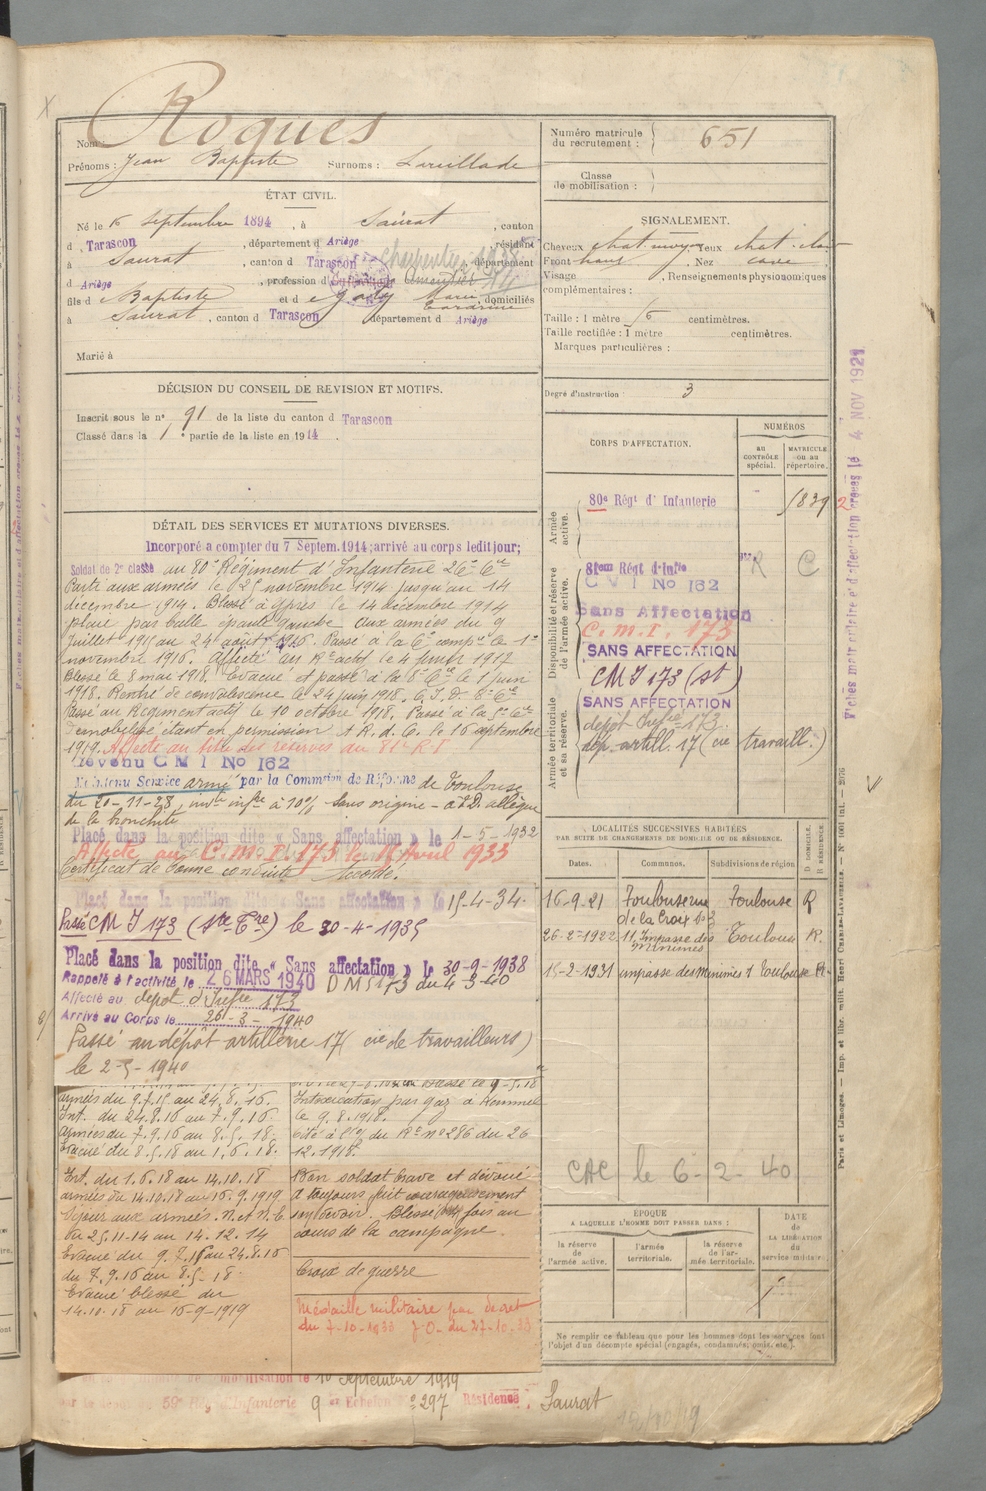 Roques
Nom :
Prénoms : Jean Baptiste Surnoms : Lareillade
ÉTAT CIVIL.
Né le 6 septembre 1894, à Saurat, canton
d Tarascon, département d Ariège, résidant
à Saurat, canton d Tarascon, département
d Ariège, profession d Cultivateur charpentier
fils d e Baptiste et d e domiciliés
à Saurat, canton d Tarascon département d Ariège
Marié à
DÉCISION DU CONSEIL DE REVISION ET MOTIFS.
Inscrit sous le n° 91 de la liste du canton d Tarascon
Classé dans la 1e partie de la liste en 1914.
DÉTAIL DES SERVICES ET MUTATIONS DIVERSES.
Incorporé a compter du 7 Septem. 1914; arrivé au corps ledit jour;
Soldat de 2e classe au 80e Régiment d'Infanterie 26e Cie
Parti aux armées le 25 novembre 1914 jusqu'au 14
décembre 1914. Blessé à Ypres le 14 décembre 1914
plaie par balle épaule gauche aux armées du 9
Juillet 1915 au 24 août 1916. Passé à la 6e compie le 1er
novembre 1916. Affecté au Rt actif le 4 1917
Blessé le 8 mai 1918. Evacué et passé à la 8e Cie le 1 juin
1918. Rentré de convalescence le 24 juin 1918. C.I.D. 8e Cie
Passé au Régiment actif le 10 octobre 1918. Passé à la 5e Cie
Démobilisé étant en permission A.R.d.C. le 16 septembre
1919. Affecté au titre des réserves au 81e R.I
devenu C M I No 162
Maintenu Service armé par la Commsion de Réforme de Toulouse
du 20-11-28, invte infre à 10% sans origine - à I.D. allègue
de la bronchite
Placé dans la position dite « Sans affectation » le 1-5-1932
Affecté au C.M.I. 173 le 16 Avril 1933
Certificat de bonne conduite Accordé.
Placé dans la position dite « Sans affectation » le 15-4-34.
Passé CM I 173 (Ste Tre) le 30-4-1935
Placé dans la position dite « Sans affectation » le 30-9-1938
Rappelé à l'activité le 26 MARS 1940 DMSI 173 du 4-3-40
Affecté au depot d'Infie 173
Arrivé au Corps le 26-3-1940
Passé au dépôt artillerie 17 (cie de travailleurs)
le 2-5-1940
armées du 9.7.15 au 24.8.16.
Int. du 24.8.16 au 7.9.16.
armées du 7.9.16 au 8.5.18.
Evacué du 8.5.18 au 1.6.18.
Int. du 1.6.18 au 14.10.18
armées du 14.10.18 au 16.9.1919
Séjour aux armées. N. et N.E.
du 25.11-14 au 14.12.14
Evacué du 9.7.15 au 24.8.16
du 7.9.16 au 8.5-18.
Evacué blessé du
14.10.18 au 16-9-1919
Blessé le 9-5.18
Intoxication par gaz à Kemmel
le 9.8.1918.
Cité à l'O/ du Rt n° 286 du 26
12.1918.
Bon soldat brave et dévoué
a toujours fait courageusement
son devoir. Blessé fois au
cours de la campagne.
Croix de guerre
Médaille militaire par decret
du 7-10-1933 J.O. du 27-10.33
mobilisation le 16 Septembre 1919
59e Rég. d'Infanterie 9e Echelon n° 297 Résidence: Saurat
15/10/19
Numéro matricule
du recrutement : 651
Classe
de mobilisation :
SIGNALEMENT.
Cheveux chat. moyen yeux chat. clair
Front haut, Nez cave
Visage, Renseignements physionomiques
complémentaires :
Taille : 1 mètre 56 centimètres.
Taille rectifiée : 1 mètre centimètres.
Marques particulières :
Degré d'instruction : 3
CORPS D'AFFECTATION.
NUMÉROS
au
CONTRÔLE
spécial.
MATRICULE
ou au
répertoire.
Armée
active.
80e Régt d' Infanterie 5839
Disponibilité et réserve
de l'armée active.
81em Régt d'Infie R C
C M I No 162
Sans Affectation
C.M.I. 173
SANS AFFECTATION
CM I 173 (St)
Armée territoriale
et sa réserve.
SANS AFFECTATION
dépôt Infie 173.
dép. artill. 17 (cie travaill.)
LOCALITÉS SUCCESSIVES HABITÉES
PAR SUITE DE CHANGEMENTS DE DOMICILE OU DE RÉSIDENCE.
Dates. Communes. Subdivisions de région. D DOMICILE. R RÉSIDENCE.
16-9-21 Toulouse rue Toulouse R
de la Croix
26-2-1922 11, Impasse des Toulouse R.
Minimes
15-2-1931 impasse des Minimes 1 Toulouse R.
CAC le 6-2-40
ÉPOQUE
A LAQUELLE L'HOMME DOIT PASSER DANS :
la réserve
de
l'armée active.
l'armée
territoriale.
la réserve
de l'ar-
mée territoriale.
DATE
de
LA LIBÉRATION
du
service militaire.
Ne remplir ce tableau que pour les hommes dont les services font
l'objet d'un décompte spécial (engagés, condamnés, omis, etc.).
Fiches matriculaire et d'affectation créées le 4 NOV 1921
Paris et Limoges. — Imp. et libr. milit. Henri CHARLES-LAVAUZELLE. — N° 1001 int. — 2076